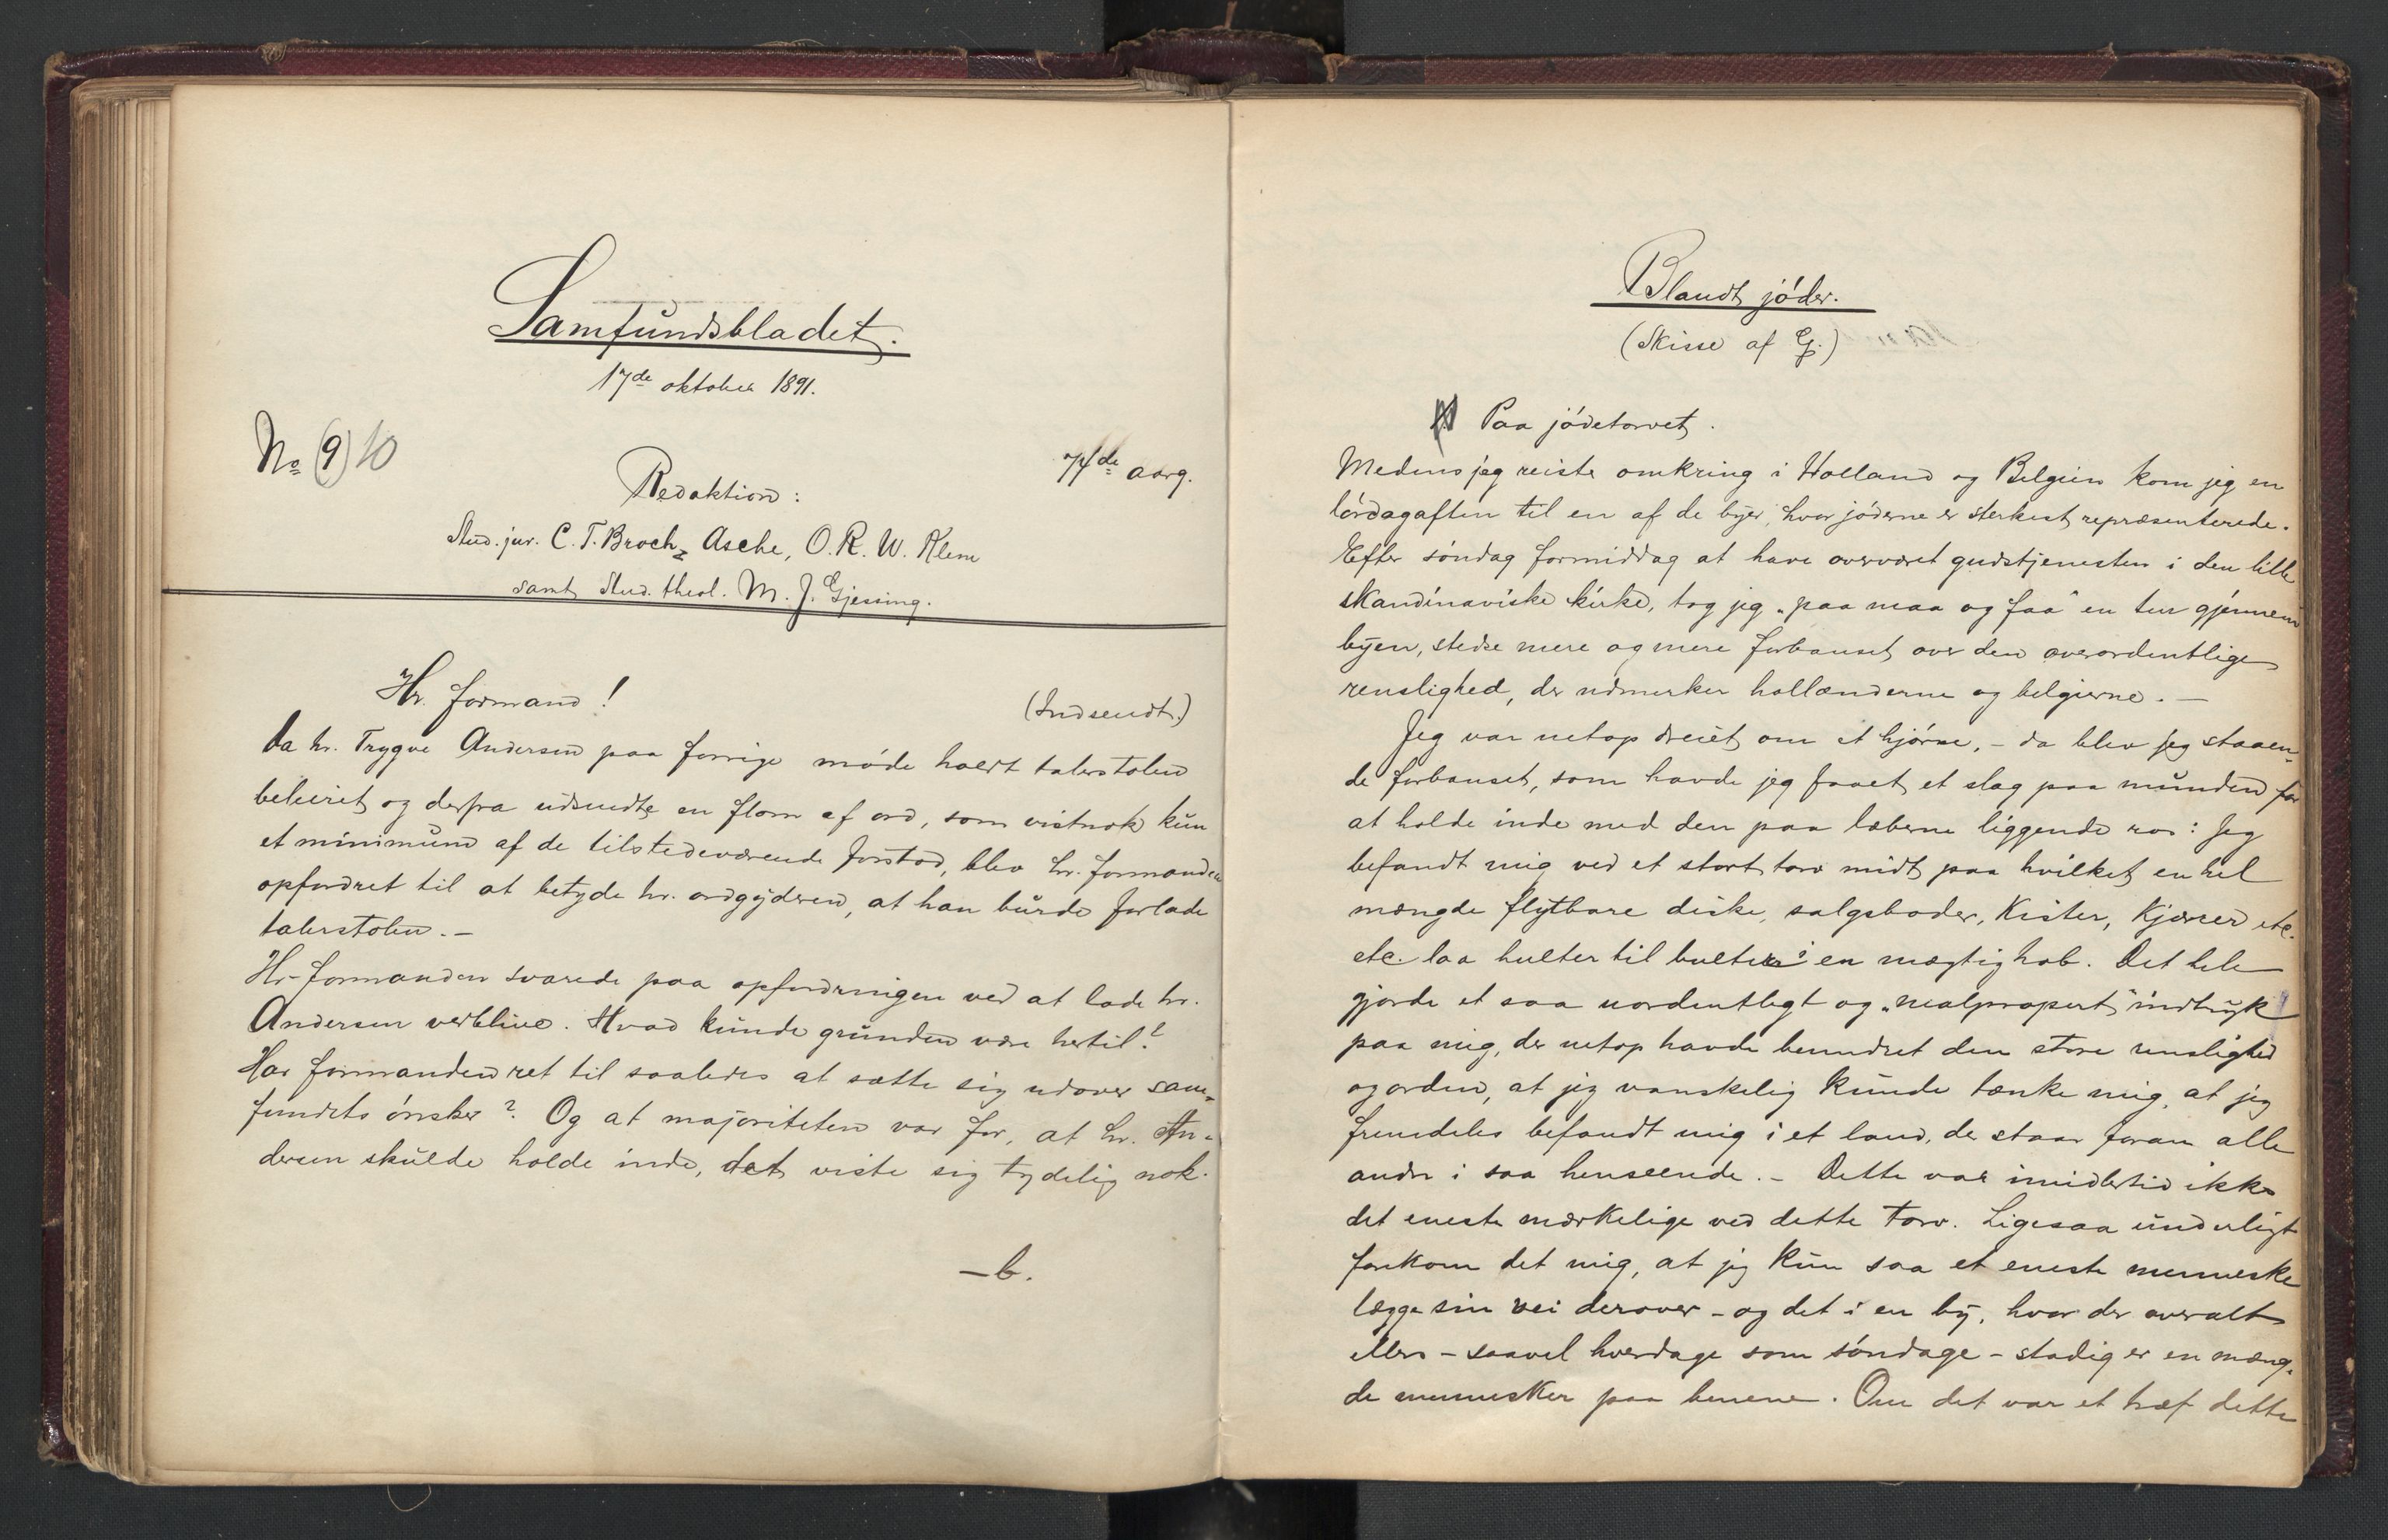 Samfundsbladet.
17de oktober 1891.
No (9) 10
7de aarg.
Redaktion:
Stud. jur. C. T. Broch, Asche, O. R. W. Klem
samt stud. theol. M. J. Gjessing.
Hr. formand!
(Indsendt.)
Da hr. Trygve Andersen paa forrige møde havdt talerstolen
beleiret og derfra udsendte en flom af ord, som vistnok kun
et minimum af de tilstedeværende forstod, blev hr. formanden
opfordret til at betyde hr. ordgyderen, at han burde forlade
talerstolen. –
Hr. formanden svarede paa opfordringen ved at lade hr.
Andersen verblive. Hvad kunde grunden være hertil?
Har formanden ret til saaledes at sætte sig udover sam-
fundets ønsker? Og at majoriteten var for, at hr. An-
dersen skulde holde inde, det viste sig tydelig nok.
– b.
Blandt jøder.
(Skisse af G.)
Paa jødetorvet.
Medens jeg reiste omkring i Holland og Belgien kom jeg en
lørdagaften til en af de byer, hvor jøderne er sterkest repræsenterede.
Efter søndag formiddag at have overværet gudstjenesten i den lille
skandinaviske kirke, tog jeg „paa maa og faa" en tur gjennem
byen, stedse mere og mere forbauset over den overordentlige
renslighed, der udmerker hollænderne og belgierne. –
Jeg var netop dreiet om et hjørne, – da blev jeg staaen-
de forbauset, som havde jeg faaet et slag paa munden for
at holde inde med den paa læberne liggende ros: Jeg
befandt mig ved et stort torv midt paa hvilket en hel
mængde flytbare diske, salgsboder, kister, kjærrer etc.
etc. laa hulter til bulter i en mægtig hob. Det hele
gjorde et saa uordentligt og „malpropert" indtryk
paa mig, der netop havde beundret den store renslighed
og orden, at jeg vanskelig kunde tænke mig, at jeg
fremdeles befandt mig i et land, der staar foran alle
andre i saa henseende. – Dette var imidlertid ikke
det eneste mærkelige ved dette torv. Ligesaa underligt
forekom det mig, at jeg kun saa et eneste menneske
lægge sin vei derover – og det i en by, hvor der overalt
ellers – saavel hverdage som søndage – stadig er en mæng-
de mennesker paa benene. Om det var et træf dette